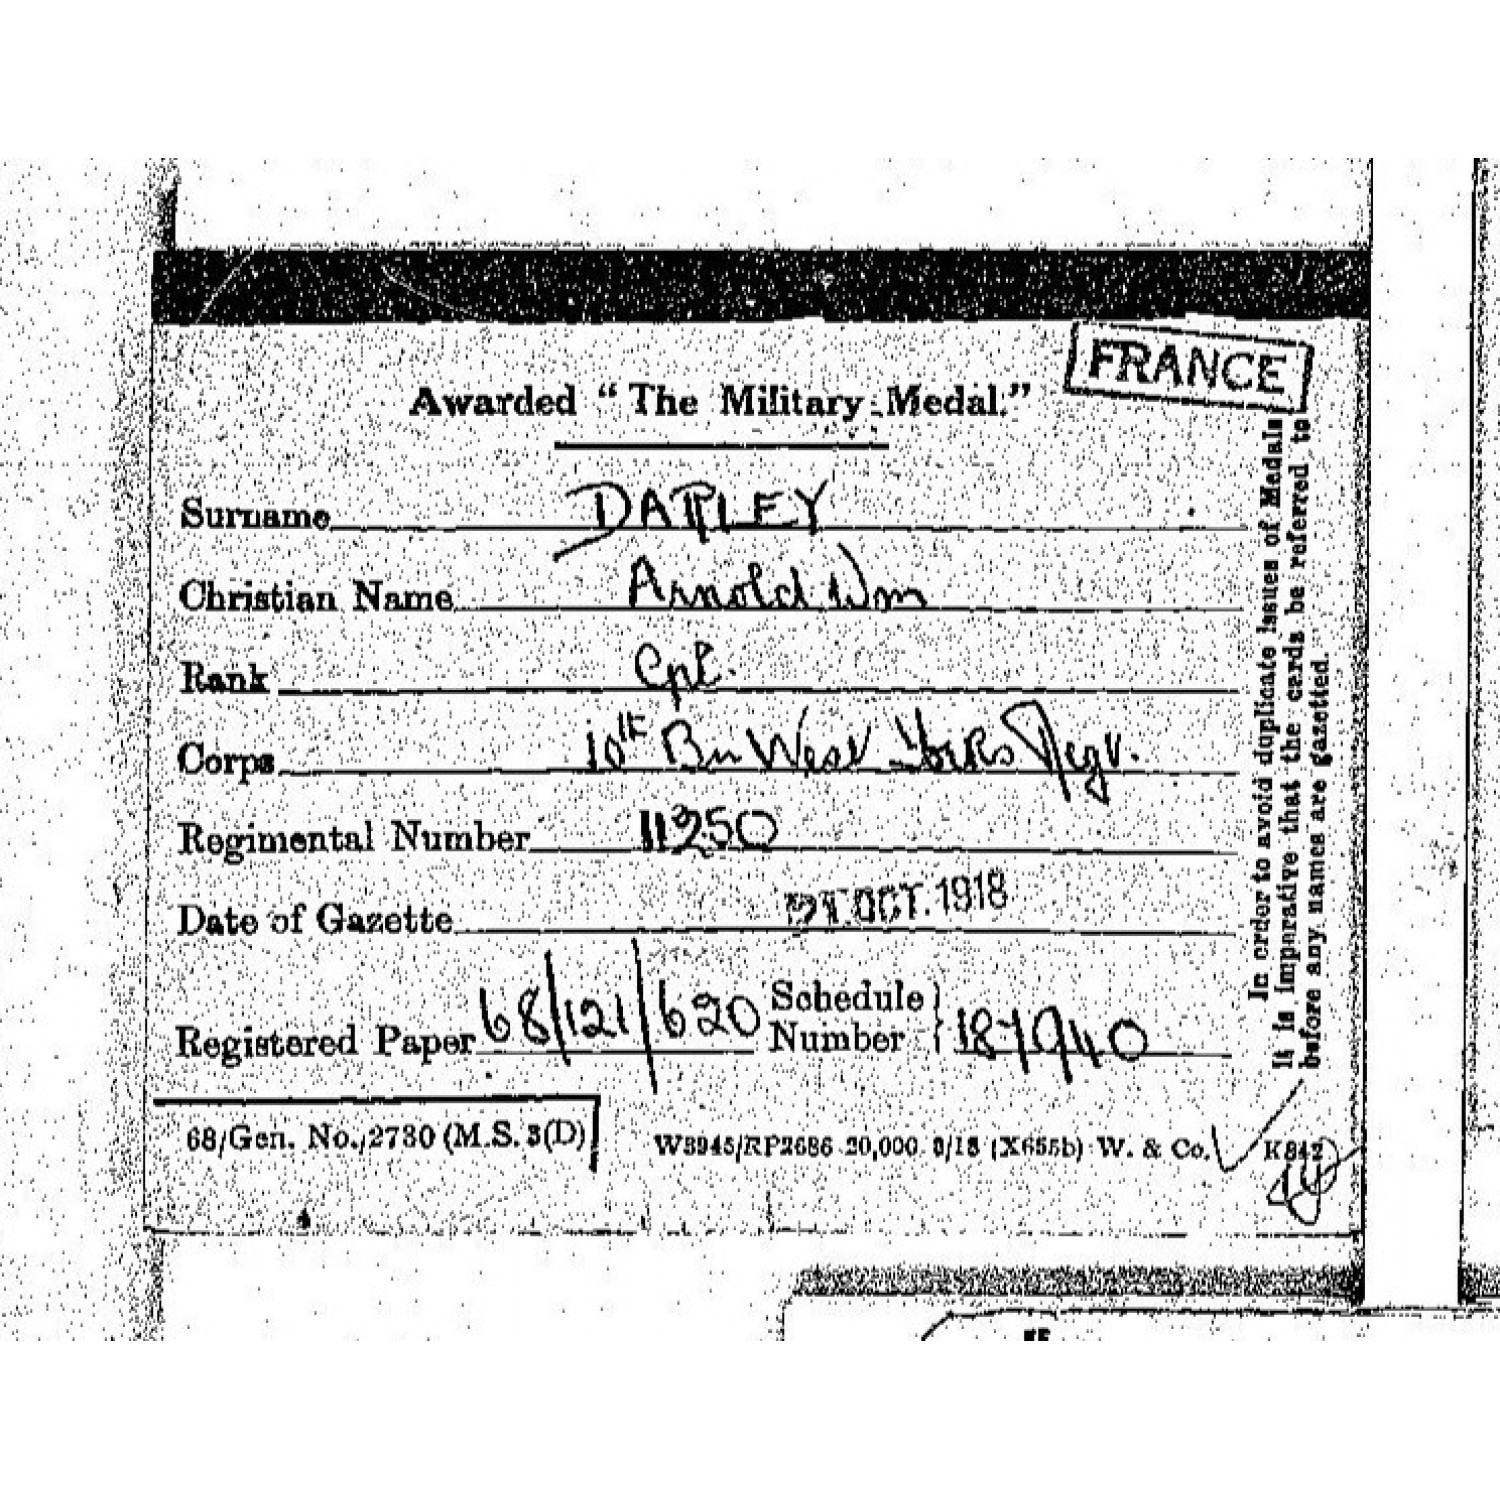 FRANCE
Awarded "The Military Medal."
Surname DAPLEY
Christian Name Arnold Wm
Rank Cpl.
Corps 10th Bn West Yorks Regt.
Regimental Number 11350
Date of Gazette 21 OCT. 1918
Registered Paper 68/121/620 Schedule Number 187940
68/Gen. No./2730 (M.S. 3(D)) W3945/RP2686 20,000 3/18 (X655b) W. & Co.
In order to avoid duplicate issues of Medals
it is imperative that the cards be referred to
before any names are gazetted.